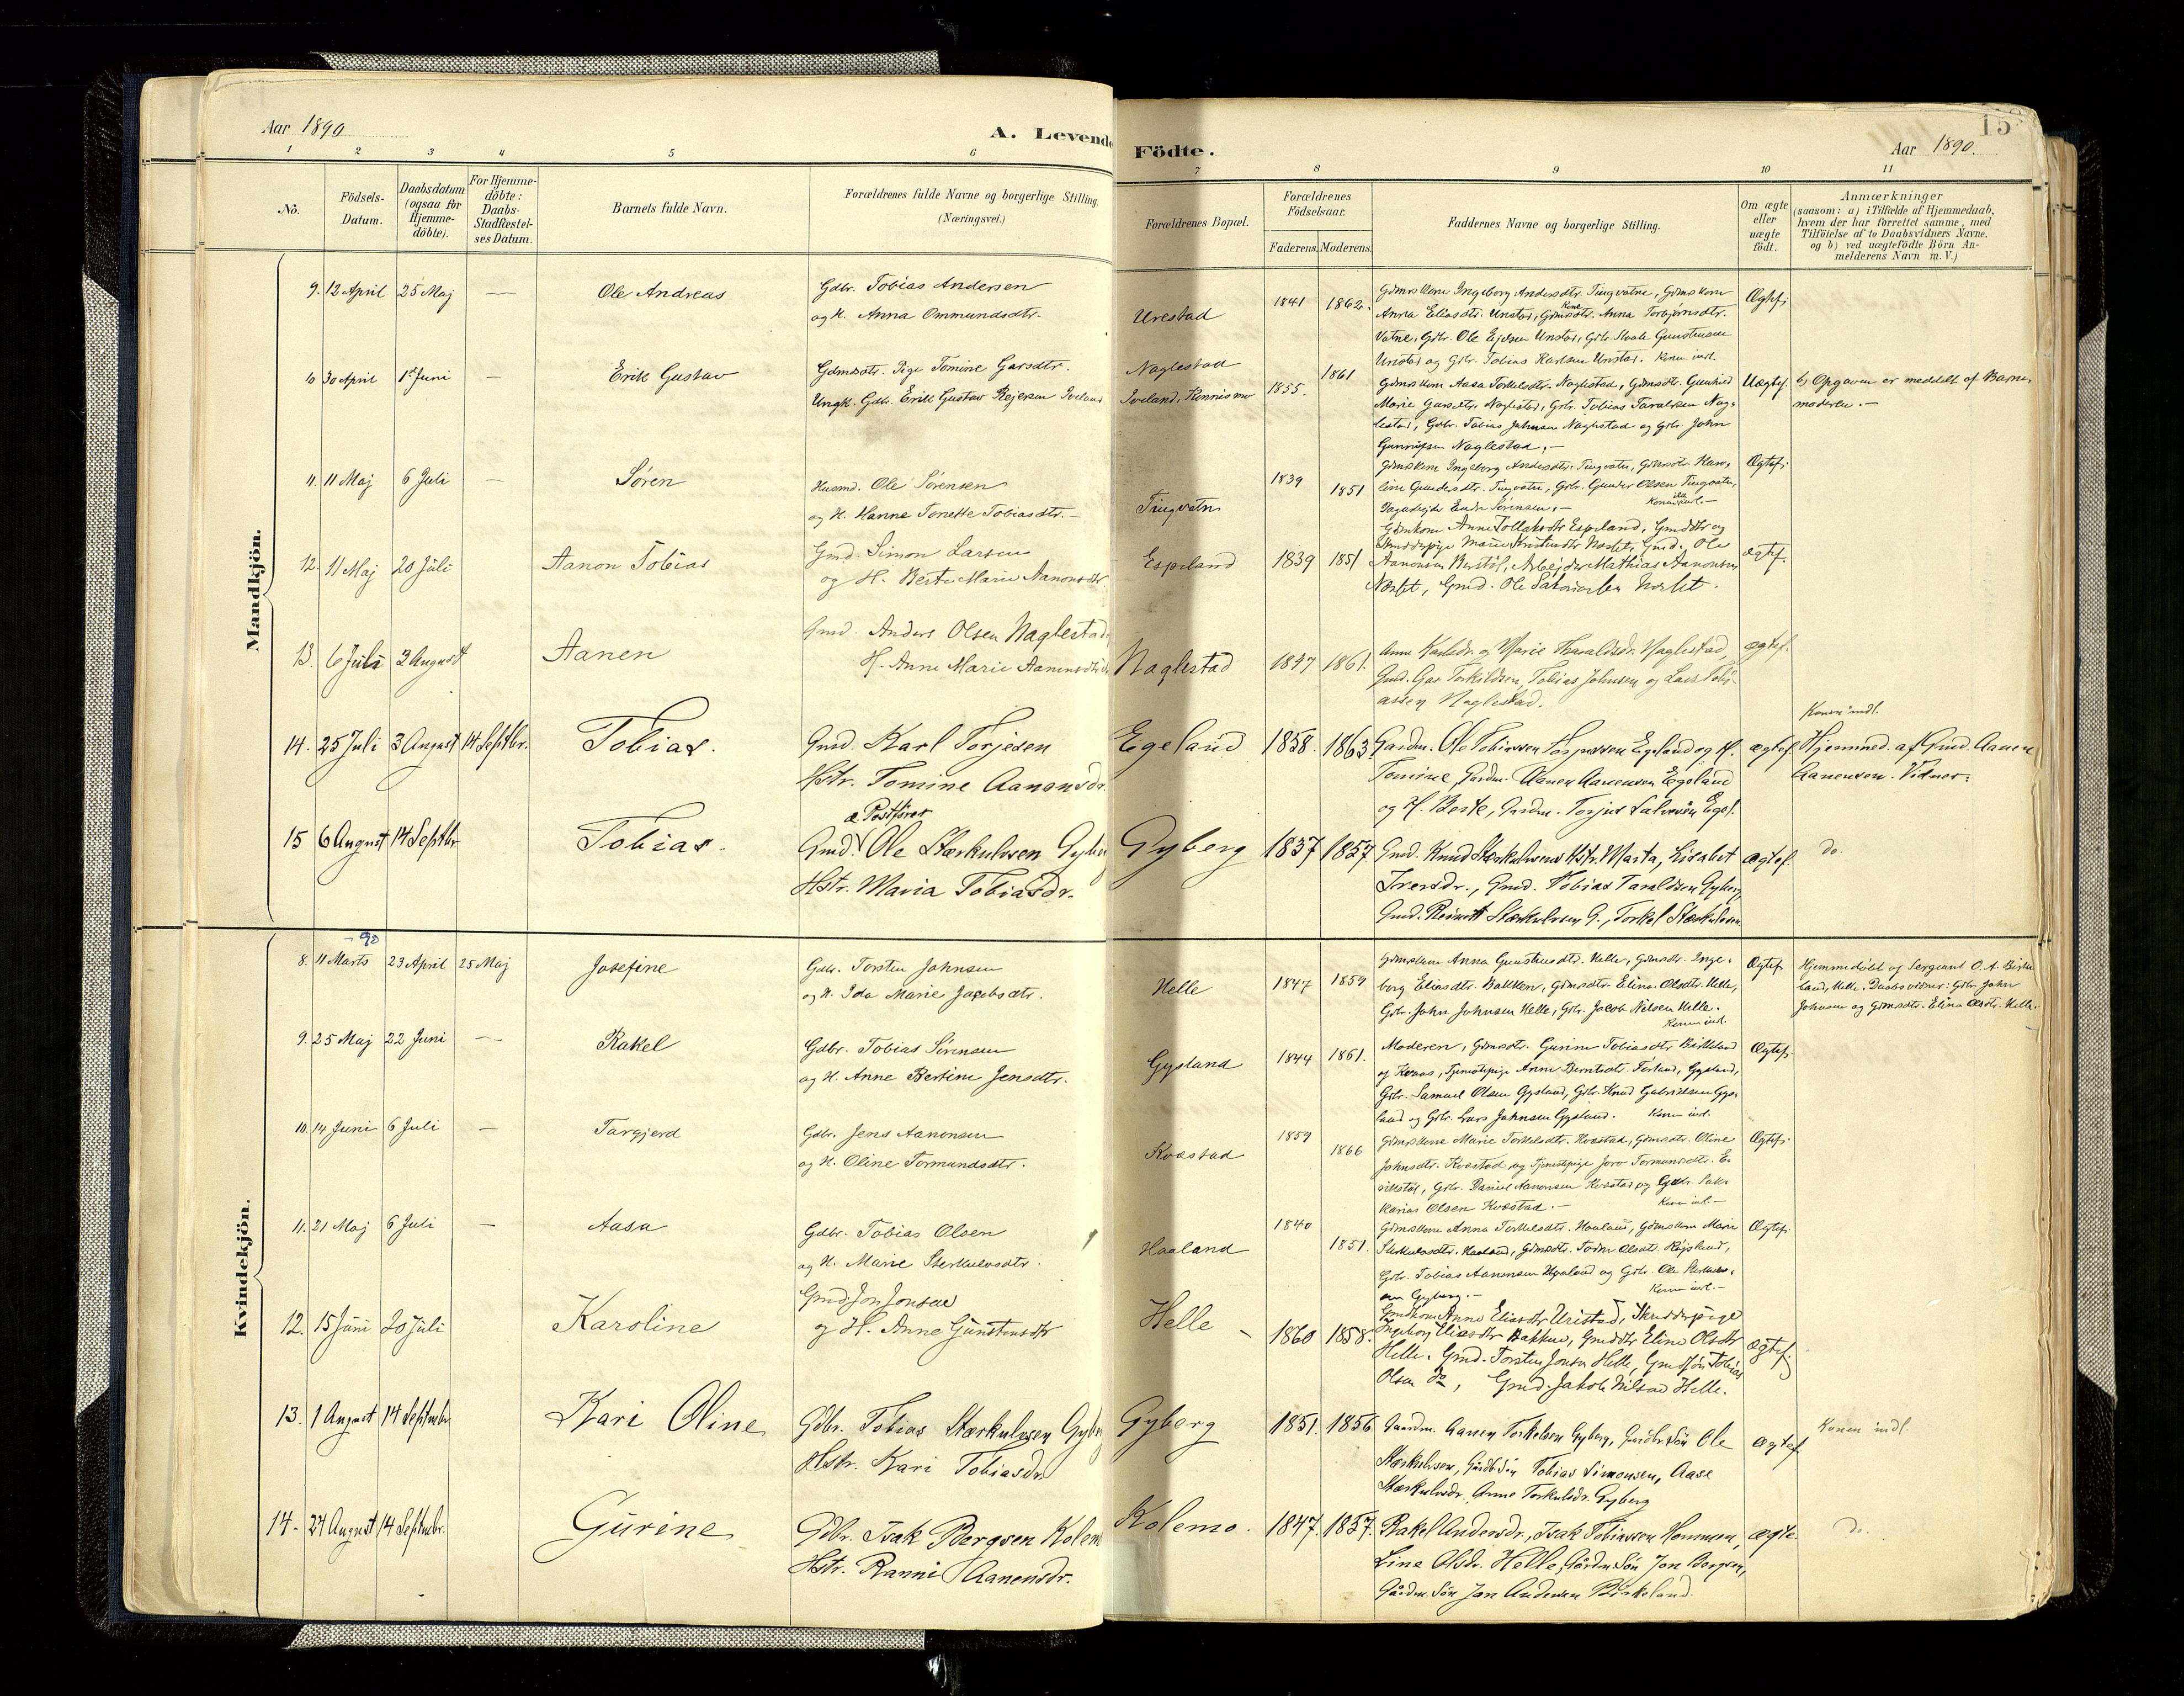 Aar 1890
A. Levende
Födte.
15
Aar 1890.
1 2 3 4 5 6 7 8 9 10 11
No.
Födsels-
Datum.
Daabsdatum
(ogsaa for
Hjemme-
döbte).
For Hjemme-
döbte:
Daabs-
Stadfæstel-
ses Datum.
Barnets fulde Navn.
Forældrenes fulde Navne og borgerlige Stilling
(Næringsvei.)
Forældrenes Bopæl.
Forældrenes
Födselsaar.
Faderens. Moderens.
Faddernes Navne og borgerlige Stilling.
Om ægte
eller
uægte
födt.
Anmærkninger
(saasom: a) i Tilfælde af Hjemmedaab,
hvem der har forrettet samme, med
Tilföielse af to Daabsvidners Navne,
og b) ved uægtefödte Börn An-
melderens Navn m. V.)
Mandkjön.
9. 12 April 25 Maj — Ole Andreas
Gdbr. Tobias Andersen
og H. Anna Ommundsdtr.
Urestad 1841 1862.
Gdmskone Ingeborg Andersdtr. Tingvatne, Gdmskone
Anna Eliasdtr. Unstad, Gdmdtr. Anna Torbjørnsdtr.
Vatne, Gdbr. Ole Unstad, Gdbr.
Unstad og Gdbr. Tobias Karlsen Unstad. Konen indl.
Ægtef.
10 30 April 1ste Juni — Erik Gustav
Gdmdtr. Pige Tomine Garsdtr.
Ungk. Gdbr. Erik Gustav Rejersen Iveland
Naglestad
Iveland, 1855. 1861
Gdmskone Aasa Torkelsdtr. Naglestad, Gdmsdtr. Gunhild
Marie Garsdtr. Naglestad, Gdbr. Tobias Taraldsen Nag-
lestad, Gdbr. Tobias Johnsen Naglestad og Gdbr. John
Naglestad. —
Uægtef.
b) Opgaven er meddelt af Barne-
moderen. —
11. 11 Maj 6 Juli — Søren
Husmd. Ole Sørensen
og H. Hanne Tonette Tobiasdtr. —
Tingvatn 1839 1851
Gdmskone Ingeborg Andersdtr. Tingvatn, Gdmsdtr. Karo-
line Gundersdtr. Tingvatn, Gdbr. Gunder Olsen Tingvatn,
Sørensen. — Konen indl. —
Ægtef.
12. 11 Maj 20 Juli Aanon Tobias
Gmd. Simon Larsen
og H. Berte Marie Aanonsdtr.
Espeland 1839 1851
Gdmkone Anne Espeland, Gmddtr og
Marie Gmd. Ole
Aanonsen Arbejder Mathias Aanonsen
Gmd. Ole
ægtef.
13. 6 Juli 3 August Aanen
Gmd. Anders Olsen Naglestad
H. Anne Marie Aanensdtr
Naglestad 1847 1861.
Anne og Marie Tharaldsdr. Naglestad,
Gmd. Gar Torkildsen, Tobias Johnsen og Lars Tobi-
assen Naglestad.
ægtef.
14. 25 Juli 3 August 14 Septbr. Tobias.
Gmd. Karl Torjesen
Hstr. Tomine Aanonsdr.
Egeland 1858. 1863.
Gaardm. Ole Tobiassen Egeland og H.
Tomine, Gardm. Aanen Aanensen Egeland
og H. Berte, Gardm. Torjus Salvesen Egel.
ægtef
Konen indl.
Hjemmed. af Gmd. Aanen
Aanensen. Vidner:
15 6 August 14 Septbr Tobias.
& Postfører
Gmd. Ole Stærkulvsen Gyberg
Hstr. Maria Tobiasdr.
Gyberg 1837 1857.
Gmd. Knud Stærkulvsens Hstr. Marta, Lisabet
Iversdr., Gmd. Tobias Taraldsen Gyberg,
Gmd. Stærkulvsen G., Torkel Stærkulvsen
ægtef.
do.
Kvindekjön.
- 90
8. 11 Marts 23 April 25 Maj Josefine
Gdbr. Torsten Johnsen
og H. Ida Marie Jacobsdtr.
Helle 1847 1859
Gdmskone Anna Gunstensdtr. Helle, Gdmsdtr. Inge-
borg Eliasdtr. Bakken, Gdmsdtr. Elina Olsdtr. Helle,
Gdbr. John Johnsen Helle, Gdbr. Jacob Nilsen Helle.
Konen indl.
Ægtef.
Hjemmedøbt af Sergeant O. A. Birke-
land, Helle. Daabsvidner: Gdbr John
Johnsen og Gdmsdtr. Elina Olsdtr. Helle.
9. 25 Maj 22 Juni — Rakel
Gdbr. Tobias Sørensen
og H. Anne Bertine Jensdtr.
Gysland 1844 1861.
Moderen, Gdmsdtr. Gurine Tobiasdtr. Birkeland
Tjenestepige Anne Berntsdtr. Førland, Gysland,
Gdbr. Samuel Olsen Gysland, Gdbr. Knud Gabrielsen Gys-
land og Gdbr. Lars Johnsen Gysland. Konen indl.
Ægtef.
10. 14 Juni 6 Juli — Targjerd
Gdbr. Jens Aanonsen
og H. Oline Tormundsdtr.
Kvastad 1859 1866
Gdmskone Marie Torkelsdtr. Kvastad, Gdmsdtr. Oline
Johnsdtr. Kvastad og Tjenestepige Joro Tormundsdtr. E-
Gdbr. Daniel Aanonsen Kvastad og Gdbr. Sak-
karias Olsen Kvastad. — Konen indl. —
Ægtef.
11. 21 Maj 6 Juli — Aasa
Gdbr. Tobias Olsen
og H. Marie Sterkulvsdtr.
Haaland 1840 1851.
Gdmskone Anna Torkelsdtr. Haaland, Gdmskone Marie
Sterkulvsdtr. Haaland, Gdmsdtr. Olsdtr.
Gdbr. Tobias Aanensen Haaland og Gdbr. Ole Sterkulv-
sen Gyberg. — Konen indl. —
Ægtef.
12. 15 Juni 20 Juli Karoline
Gmd. Jon Jonsen
og H. Anne Gunstensdtr
Helle 1860 1858.
Gmdkone Anne Eliasdtr Uristad,
Ingeborg Eliasdtr Bakken, Gmddtr Eline Olsdtr
Helle. Gmd. Torsten Jonsen Helle, Gmdsøn Tobias
Olsen do, Gmd. Jakob Nilsen Helle.
ægtef.
13. 1 August 14 Septembr. Kari Oline
Gdbr. Tobias Stærkulvsen Gyberg
Hstr. Kari Tobiasdr
Gyberg 1851. 1856.
Gaardm. Aanen Torkelsen Gyberg, Gmdbr. Søn Ole
Stærkulvsen, Gårdb. Søn Tobias Simonsen, Aase
Stærkulvsdr. Anne Torkelsdr. Gyberg
ægtef.
Konen indl.
14. 27 August 14 Septembr. Gurine
Gdbr. Isak Bergsen Kolemo
Hstr. Ranni Aanensdr.
Kolemo. 1847. 1857.
Rakel Andersdr., Isak Tobiassen Hommen,
Line Olsdr. Helle, Gårdm. Søn Jon Bergsen,
Gårdm. Søn Jon Andersen Birkeland.
ægte
do.